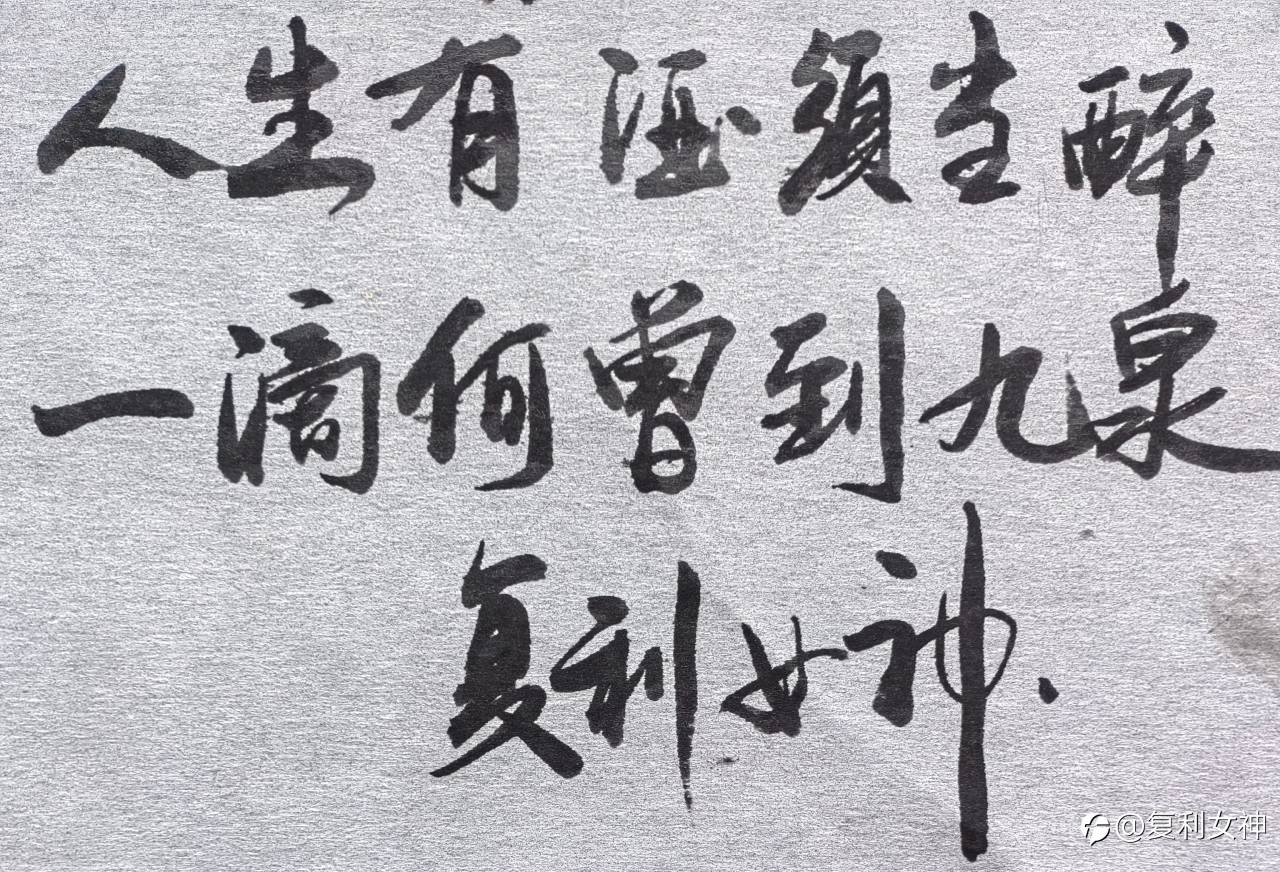 人生有酒须当醉
一滴何曾到九泉
复利女神、
@复利女神